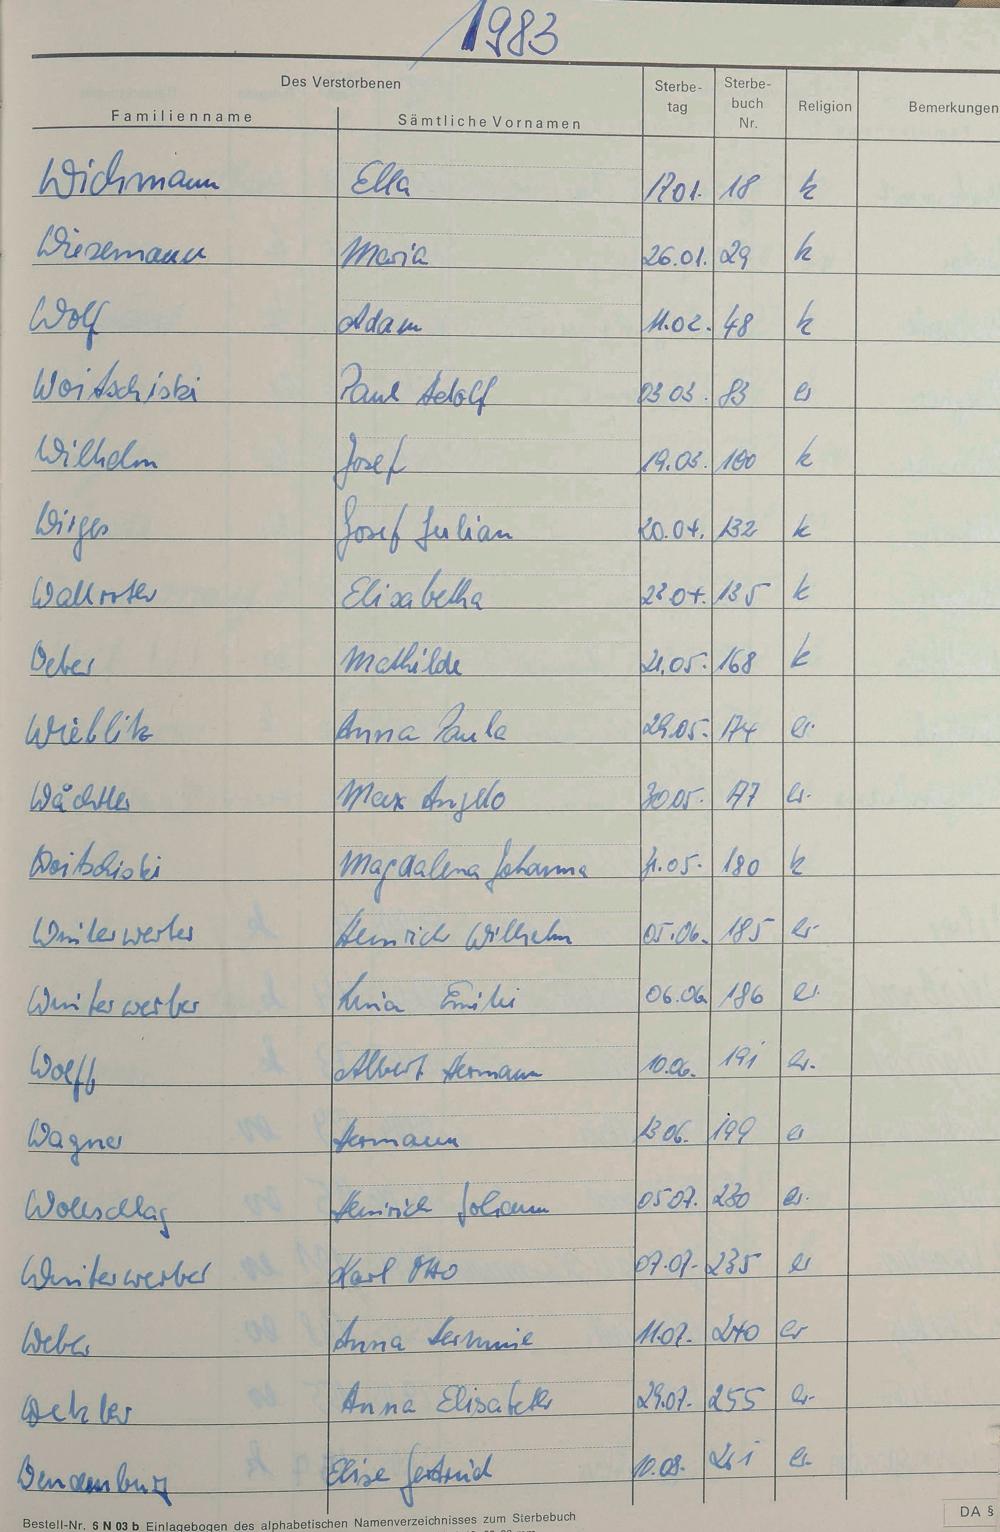 1983
Des Verstorbenen
Familienname Sämtliche Vornamen Sterbe-tag Sterbe-buch Nr. Religion Bemerkungen
Wichmann Ella 17.01. 18 k
Wiesemann Maria 26.01. 29 k
Wolf Adam 11.02. 48 k
Woitschiski Paul Adolf 03.03. 83 ev
Wilhelm Josef 19.03. 100 k
Wirges Josef Julian 20.04. 132 k
Wallroter Elisabetha 23.04. 135 k
Weber Mathilde 21.05. 168 k
Wieblitz Anna Paula 29.05. 174 ev.
Wächtler Max Angelo 30.05. 177 ev.
Woitschiski Magdalena Johanna 31.05. 180 k
Winterwerber Heinrich Wilhelm 05.06. 185 ev.
Winterwerber Emilie 06.06. 186 ev.
Wolff Albert Hermann 10.06. 191 ev.
Wagner Hermann 13.06. 199 ev
Wollschlag Heinrich Johann 05.07. 230 ev.
Winterwerber Karl Otto 07.07. 235 ev
Weber Anna Hermine 11.07. 240 ev
Anna Elisabeth 29.07. 255 ev.
Elise Gertrud 10.08. ev.
Bestell-Nr. S N 03 b Einlagebogen des alphabetischen Namenverzeichnisses zum Sterbebuch
DA §